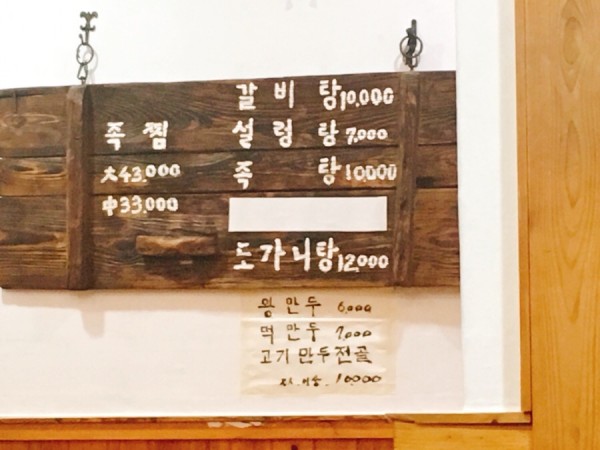 족찜
大43.000
中33.000
갈비탕10.000
설렁탕7.000
족탕10.000
도가니탕12000
왕만두 6,000
떡만두 7,000
고기만두전골
10.000